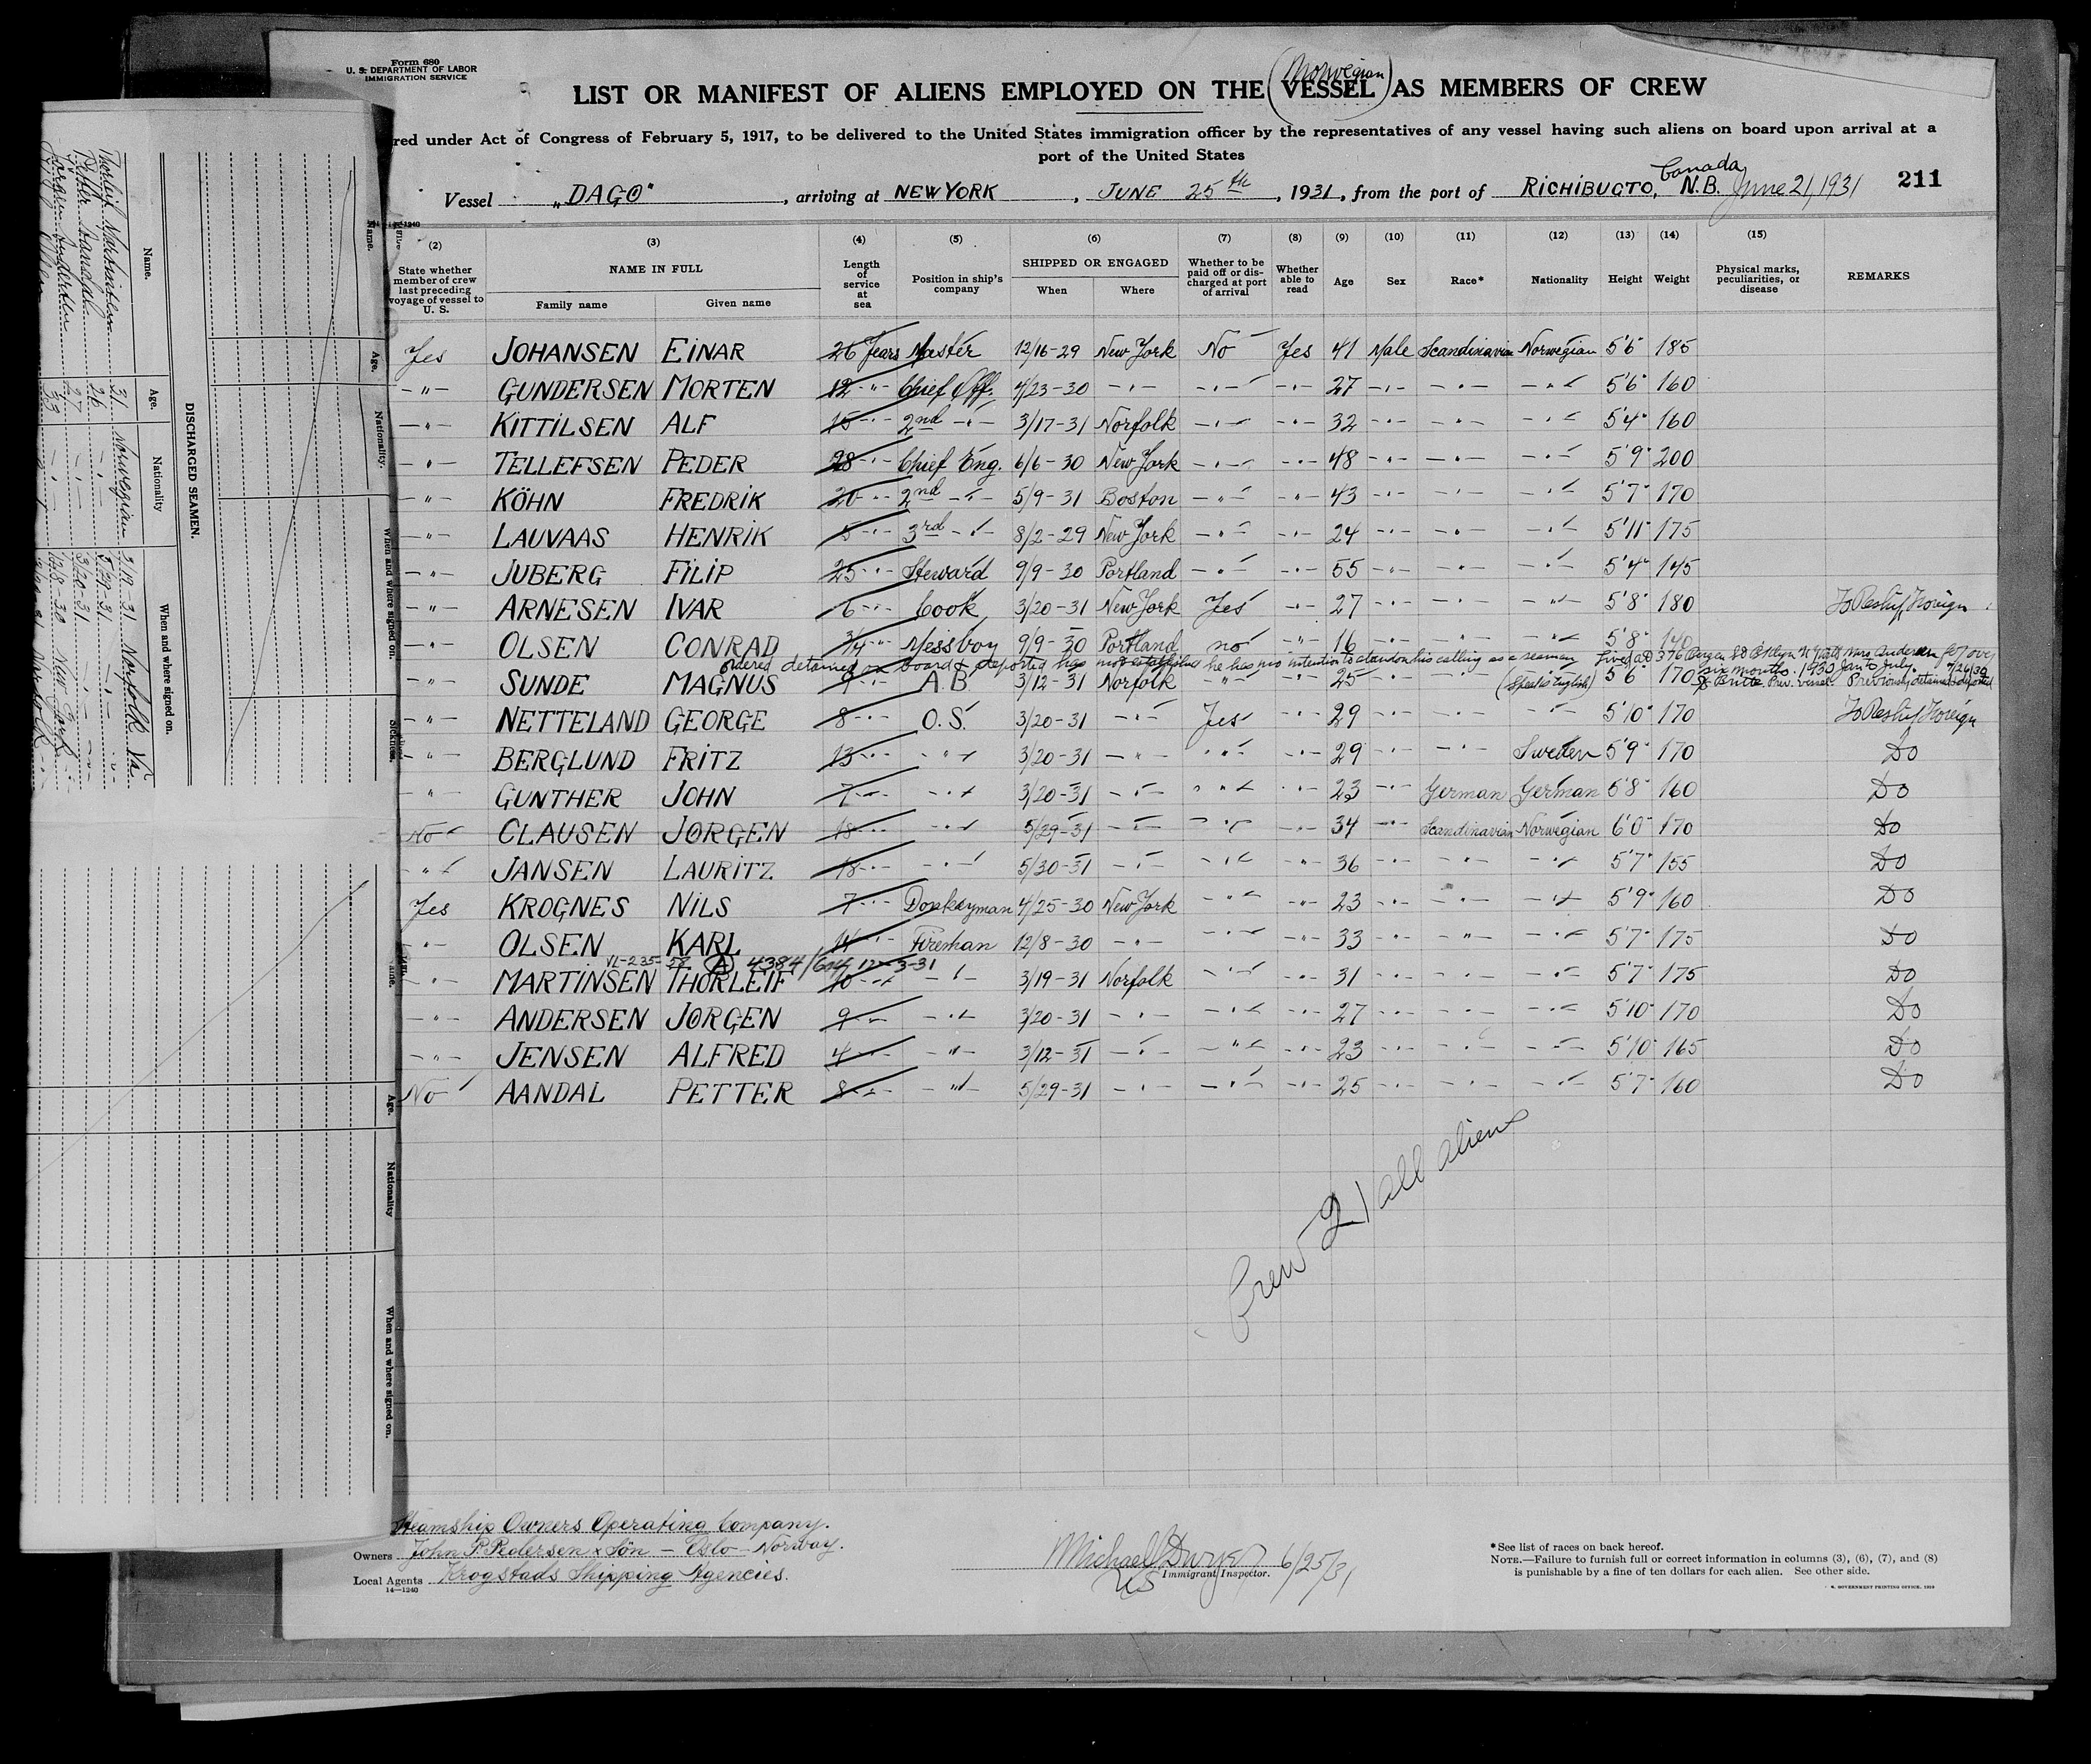 Form 680
U. S. DEPARTMENT OF LABOR
IMMIGRATION SERVICE
Norwegian
LIST OR MANIFEST OF ALIENS EMPLOYED ON THE (VESSEL) AS MEMBERS OF CREW
red under Act of Congress of February 5, 1917, to be delivered to the United States immigration officer by the representatives of any vessel having such aliens on board upon arrival at a
port of the United States
Vessel „DAGO", arriving at NEW YORK, JUNE 25th, 1931, from the port of RICHIBUCTO, N.B. Canada June 21, 1931 211
(2) (3) (4) (5) (6) (7) (8) (9) (10) (11) (12) (13) (14) (15)
State whether member of crew last preceding voyage of vessel to U. S. NAME IN FULL Family name Given name Length of service at sea Position in ship's company SHIPPED OR ENGAGED When Where Whether to be paid off or discharged at port of arrival Whether able to read Age Sex Race* Nationality Height Weight Physical marks, peculiarities, or disease REMARKS
Yes JOHANSEN EINAR 26 Years Master 12/16-29 New York No Yes 41 Male Scandinavian Norwegian 5'6" 185
-"- GUNDERSEN MORTEN 12 -"- Chief Off. 4/23-30 -"- -"- -"- 27 -"- -"- -"- 5'6" 160
-"- KITTILSEN ALF 15 -"- 2nd -"- 3/17-31 Norfolk -"- -"- 32 -"- -"- -"- 5'4" 160
-"- TELLEFSEN PEDER 28 -"- Chief Eng. 6/6-30 New York -"- -"- 48 -"- -"- -"- 5'9" 200
-"- KÖHN FREDRIK 20 -"- 2nd -"- 5/9-31 Boston -"- -"- 43 -"- -"- -"- 5'7" 170
-"- LAUVAAS HENRIK 5 -"- 3rd -"- 8/2-29 New York -"- -"- 24 -"- -"- -"- 5'11" 175
-"- JUBERG FILIP 25 -"- Steward 9/9-30 Portland -"- -"- 55 -"- -"- -"- 5'4" 145
-"- ARNESEN IVAR 6 -"- Cook 3/20-31 New York Yes -"- 27 -"- -"- -"- 5'8" 180 To Reship Foreign
-"- OLSEN CONRAD 3/4 -"- Messboy 9/9-30 Portland no -"- 16 -"- -"- -"- 5'8" 140
ordered detained on board & deported has not established he has no intention to abandon his calling as a seaman
six months. 1930 Jan to July.
-"- SUNDE MAGNUS 7 -"- A.B. 3/12-31 Norfolk -"- -"- 25 -"- -"- (Speaks English) 5'6" 170 Prev. vessel. Previously detained & deported
-"- NETTELAND GEORGE 8 -"- O.S. 3/20-31 -"- Yes -"- 29 -"- -"- -"- 5'10" 170 To Reship Foreign
-"- BERGLUND FRITZ 13 -"- -"- 3/20-31 -"- -"- -"- 29 -"- -"- Sweden 5'9" 170 Do
-"- GUNTHER JOHN 7 -"- -"- 3/20-31 -"- -"- -"- 23 -"- German German 5'8" 160 Do
No CLAUSEN JØRGEN 18 -"- -"- 5/29-31 -"- -"- -"- 34 -"- Scandinavian Norwegian 6'0" 170 Do
-"- JANSEN LAURITZ 18 -"- -"- 5/30-31 -"- -"- -"- 36 -"- -"- -"- 5'7" 155 Do
Yes KROGNES NILS 7 -"- Donkeyman 4/25-30 New York -"- -"- 23 -"- -"- -"- 5'9" 160 Do
-"- OLSEN KARL 14 -"- Fireman 12/8-30 -"- -"- -"- 33 -"- -"- -"- 5'7" 175 Do
-"- MARTINSEN THORLEIF 10 -"- -"- 3/19-31 Norfolk -"- -"- 31 -"- -"- -"- 5'7" 175 Do
-"- ANDERSEN JØRGEN 9 -"- -"- 3/20-31 -"- -"- -"- 27 -"- -"- -"- 5'10" 170 Do
-"- JENSEN ALFRED 4 -"- -"- 3/12-31 -"- -"- -"- 23 -"- -"- -"- 5'10" 165 Do
No AANDAL PETTER 8 -"- -"- 5/29-31 -"- -"- -"- 25 -"- -"- -"- 5'7" 160 Do
Crew 21 all aliens
Steamship Owners Operating Company.
Owners John P. Pedersen & Sön - Oslo - Norway.
Local Agents Krogstads Shipping Agencies.
14-1240
Michael Dwyer 6/25/31
US Immigrant Inspector.
*See list of races on back hereof.
NOTE.—Failure to furnish full or correct information in columns (3), (6), (7), and (8)
is punishable by a fine of ten dollars for each alien. See other side.
DISCHARGED SEAMEN.
Name. Age. Nationality When and where signed on.
Thorleif Martinsen 31 Norwegian 3/19-31 Norfolk Va
Petter Aandal 26 -"- 5/29-31 -"-
Jørgen Andersen 27 -"- 3/20-31 -"-
Olsen 33 -"- 12/8-30 New York
Name. Age. Nationality. When and where signed on.
Age. Nationality When and where signed on.